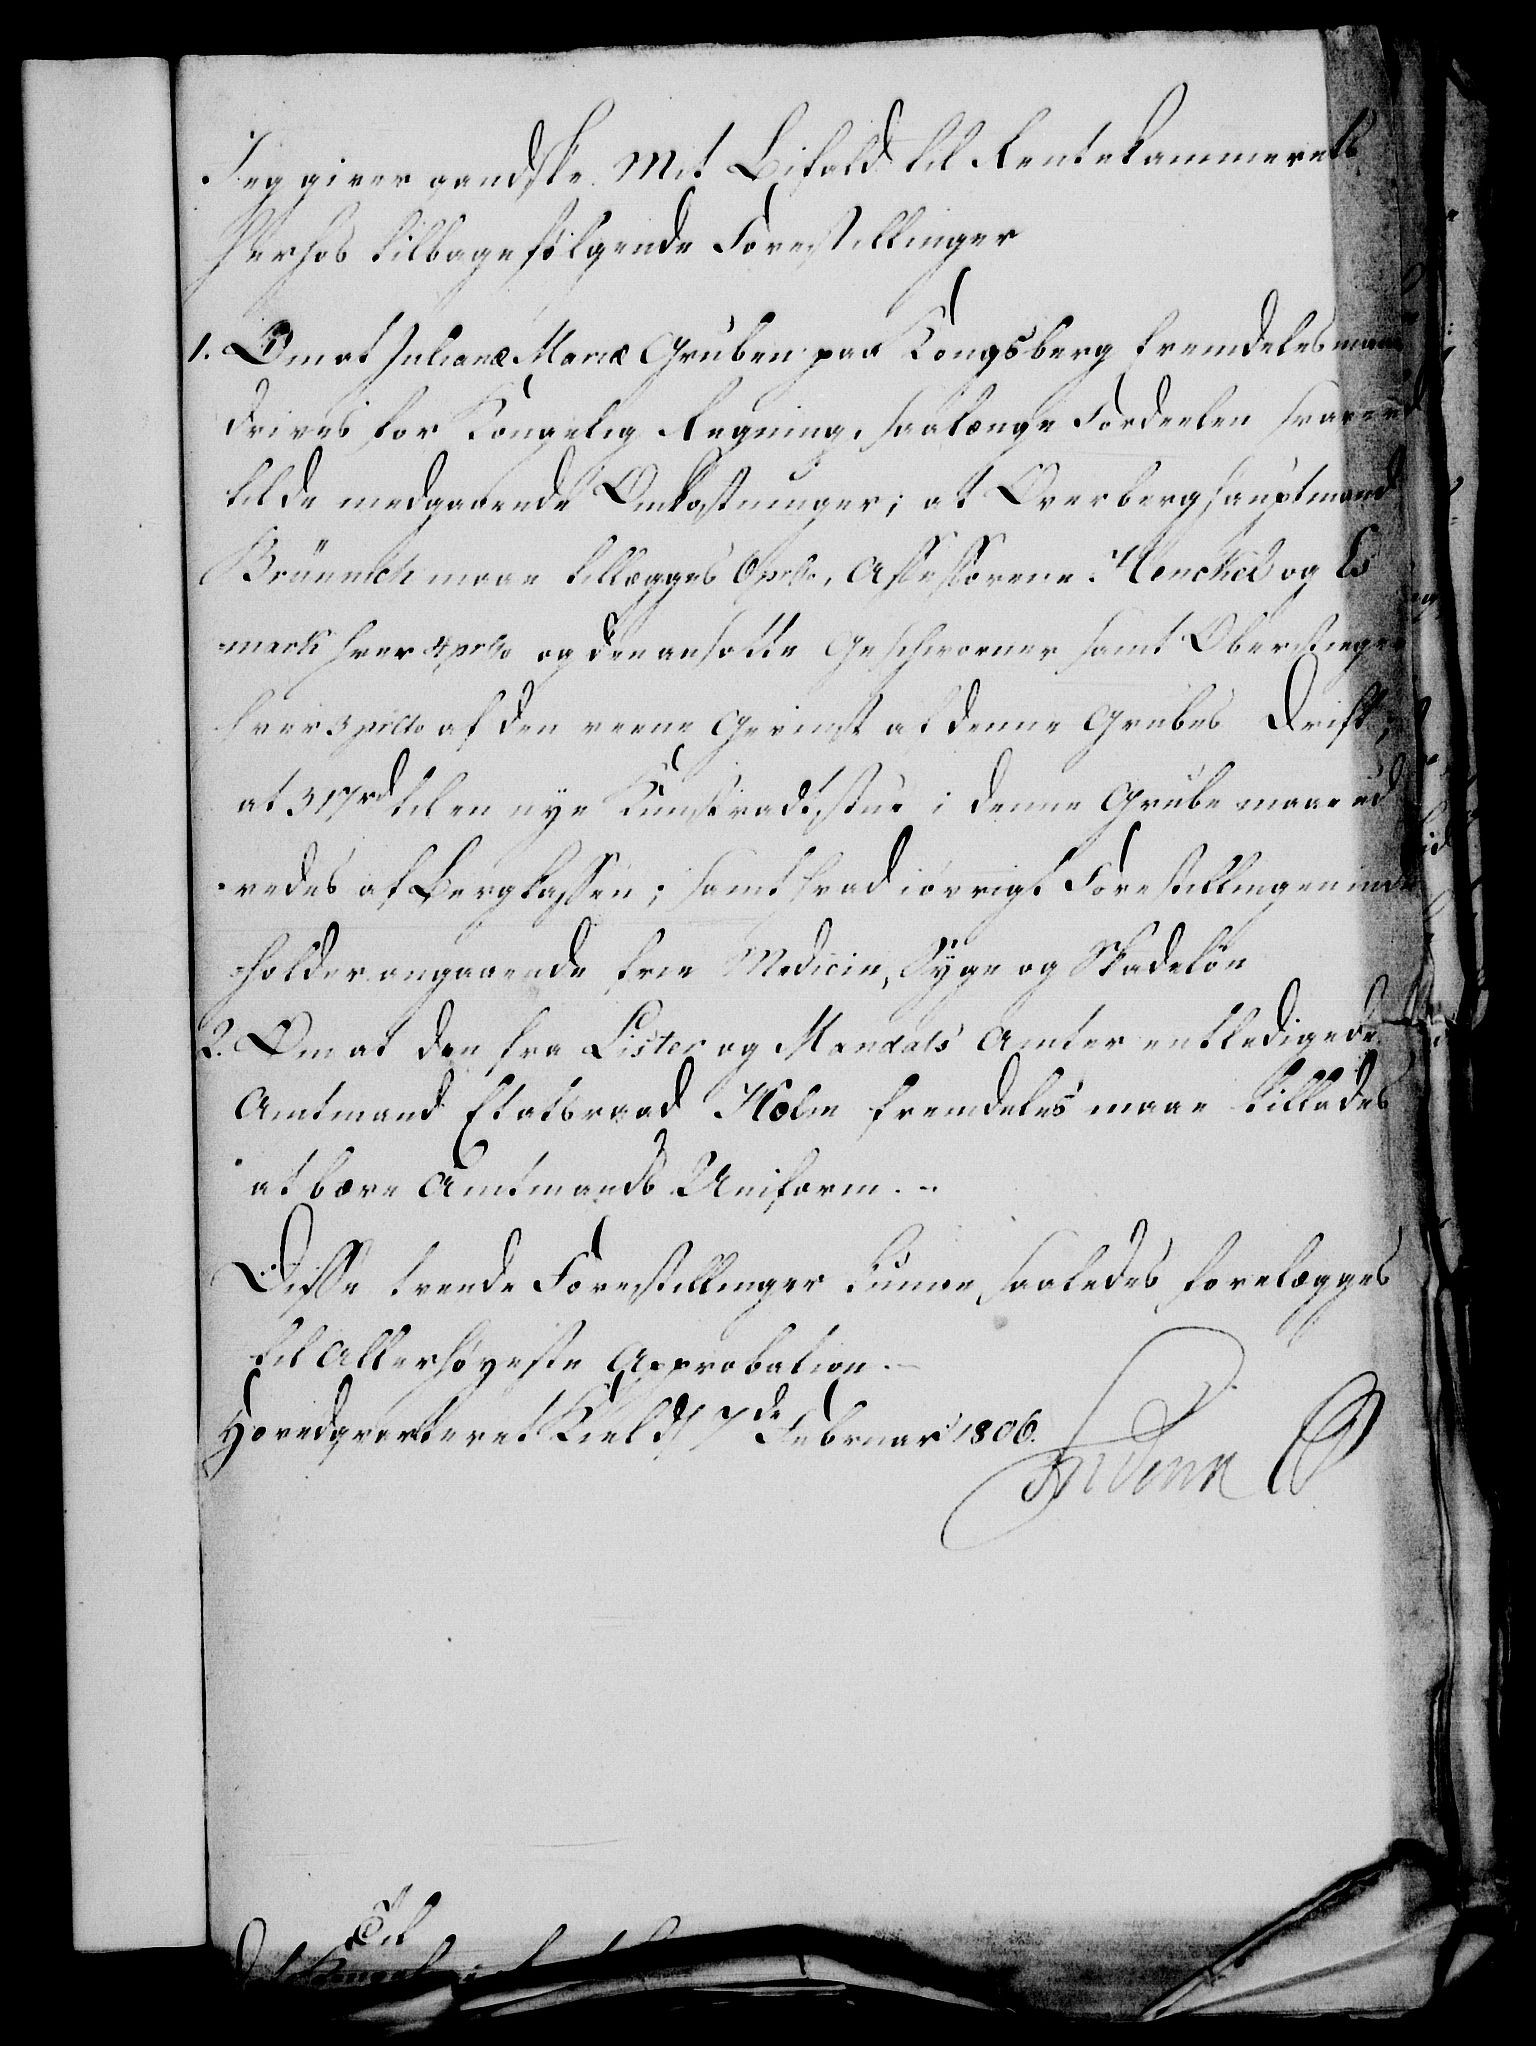 Jeg giver gandske Mit Bifald til Rentekammerets
herhos tilbagefølgende Forestillinger
1. Om at Julianæ Mariæ Gruben paa Kongsberg fremdeles maae
drives for Kongelig Regning, saalænge Fordeelen svarer
til de medgaaende Omkostninger; at Overberghauptmand
Brünnich maae tillægges 6 prCto, Assessorene Henckel og Es
mark hver 4 prCto og de ansatte Geschworner samt Oberstieger
hver 3 prCto af den reene Gevinst af denne Grubes Drift;
at 317 rd til en nye Kunstradstue i denne Grube maae ud
redes af Bergkassen; samt hvad iøvrigt Forestillingen inde
holder angaaende frie Medicin, Syge og Skadeløn
2. Om at den fra Lister og Mandals Amter entledigede
Amtmand Etatsraad Holm fremdeles maae tillades
at bære Amtmands Uniform.-
Disse tvende Forestillinger kunne saaledes forelægges
til Allerhøyeste Approbation.-
Hovedqvarteret Kiel d. 7de Februar 1806.
Friderik
Til